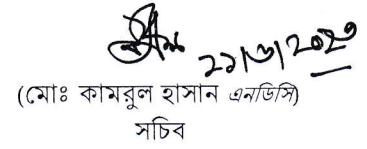 ২১/৬/২০২৩
(মোঃ কামরুল হাসান এনডিসি)
সচিব